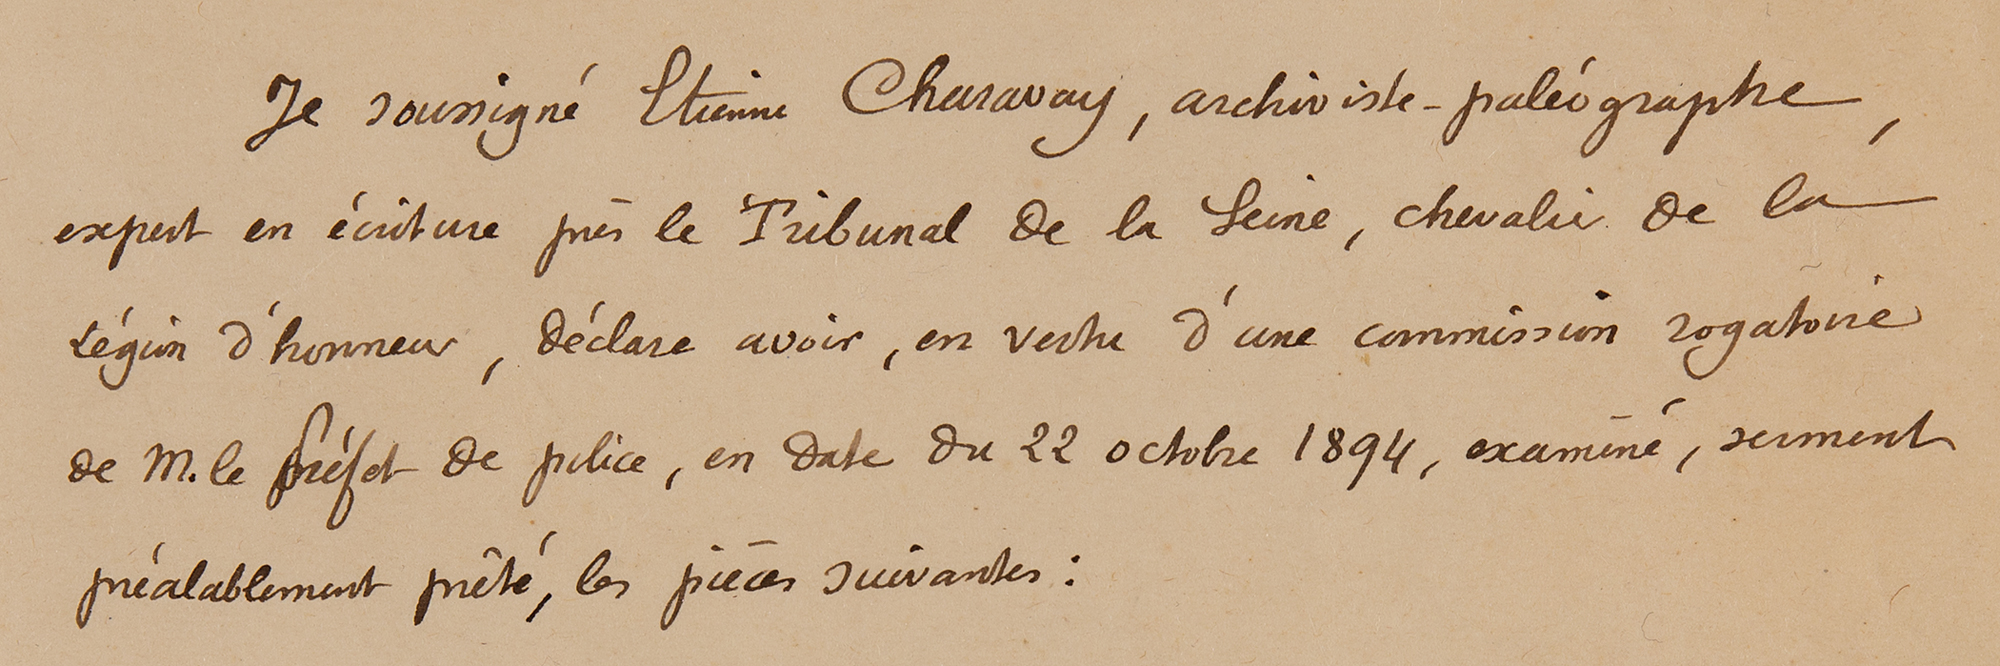 Je soussigné Etienne Charavay, archiviste-paléographe,
expert en écriture près le Tribunal de la Seine, chevalier de la
Légion d'honneur, déclare avoir, en vertu d'une commission rogatoire
de M. le préfet de police, en date du 22 octobre 1894, examiné, serment
préalablement prêté, les pièces suivantes :